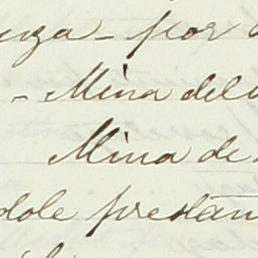 uza - por
- Mina del
Mina de
dole prestan